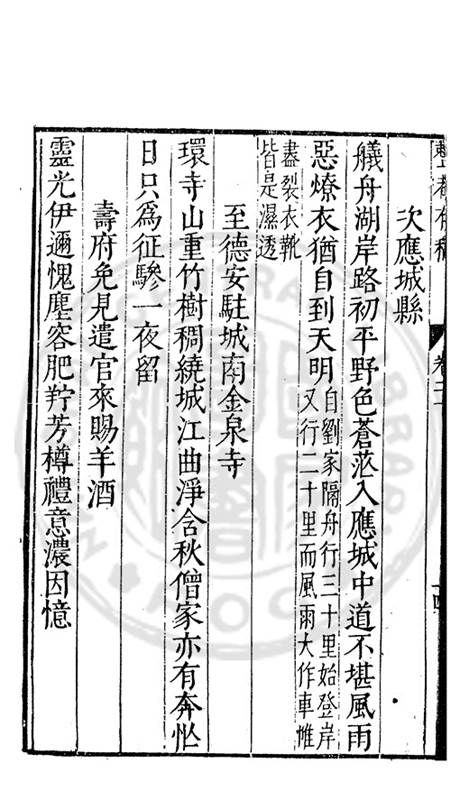 次應城縣
艤舟湖岸路初平野色蒼茫入應城中道不堪風雨
惡燎衣猶自到天明自劉家隔舟行三十里始登岸
又行二十里而風雨大作車帷
盡裂衣靴
皆是濕透
至德安駐城南金泉寺
環寺山重竹樹稠繞城江曲淨含秋僧家亦有奔忙
日只為征驂一夜留
壽府免見遣官來賜羊酒
靈光伊邇愧塵容肥羜芳樽禮意濃因憶